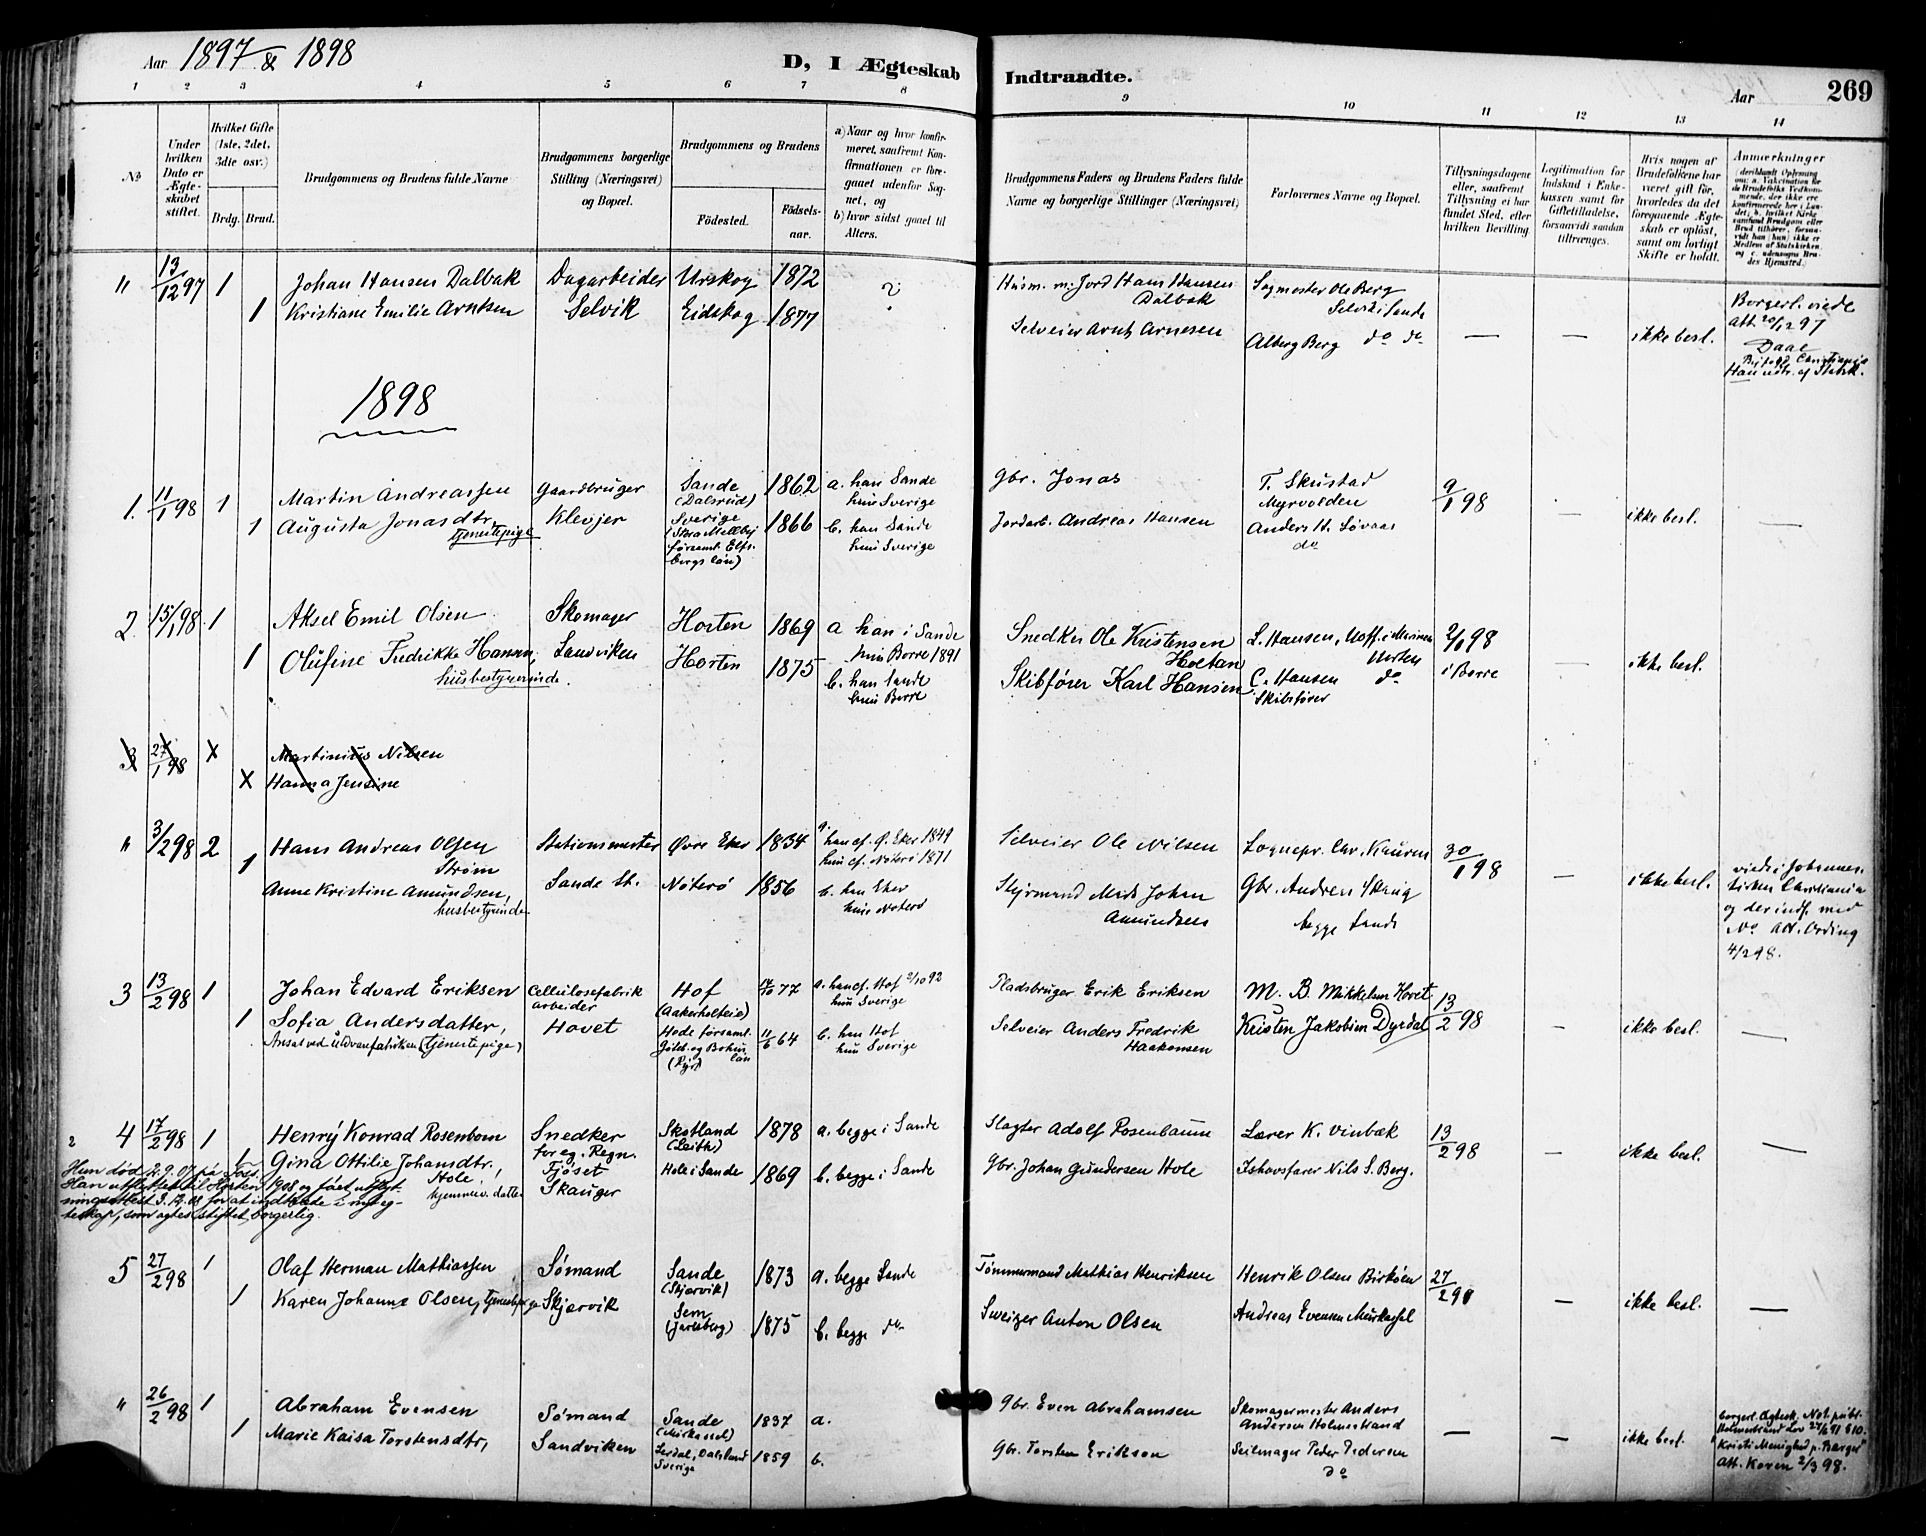 Aar 1897 & 1898
D, I Ægteskab
Indtraadte.
Aar
269
1 2 3 4 5 6 7 8 9 10 11 12 13 14
№
Under hvilken Dato er Ægteskabet stiftet.
Hvilket Gifte (1ste, 2det, 3die osv.)
Brdg. Brud.
Brudgommens og Brudens fulde Navne
Brudgommens borgerlige Stilling (Næringsvei) og Bopæl.
Brudgommens og Brudens
Fødested.
Fødselsaar.
a) Naar og hvor konfirmeret, saafremt Konfirmationen er foregaaet udenfor Sognet, og
b) hvor sidst gaaet til Alters.
Brudgommens Faders og Brudens Faders fulde Navne og borgerlige Stillinger (Næringsvei)
Forlovernes Navne og Bopæl.
Tillysningsdagene eller, saafremt Tillysning ei har fundet Sted, efter hvilken Bevilling
Legitimation for Indskud i Enkekassen samt for Giftetilladelse, forsaavidt saadan tiltrænges.
Hvis nogen af Brudefolkene har været gift før, hvorledes da det foregaaende Ægteskab er opløst, samt om lovligt Skifte er holdt.
Anmærkninger
" 13/12 97 1 Johan Hansen Dalbak Dagarbeider Urskog 1872 ? Husm. m. Jord Hans Hansen Dalbak Sagmester Ole Berg Selvik i Sande
1 Kristiane Emilie Arntsen Selvik Eidskog 1877 Selveier Arnt Arnesen Alberg Berg do do — — ikke besl.
Borgerl. viede
Att. 20/12 97
Daae
1898
1. 11/1 98 1 Martin Andreassen Gaardbruger Sande (Dalsrud) 1862 a. han Sande hun Sverige Gbr. Jonas T. Skustad Myrvolden 9/1 98
1 Augusta Jonasdtr. tjenestepige Klevjer Sverige (Stora Mellby församl. Elfsborgs län) 1866 b. han Sande hun Sverige Jordarb. Andreas Hansen Anders H. Løvaas do — ikke besl. —
2. 15/1 98 1 Aksel Emil Olsen Skomager Horten 1869 a han i Sande hun Borre 1891 Snedker Ole Kristensen Holtan L. Hansen, Uoff. i Marinen Horten 2/1 98 i Borre
1 Olufine Fredrikke Hansen, husbestyrerinde. Sandviken Horten 1875 b. han Sande hun Borre Skibfører Karl Hansen C. Hansen do Skibsfører — ikke besl.
3 27/1 98 X Martinius Nilsen
X Hanna Jensine
" 3/2 98 2 Hans Andreas Olsen Strøm Stationsmester Øvre Eker 1834 a. han cf. Ø. Eker 1849 hun cf. Nøterø 1871 Selveier Ole Nilsen Sognepr. Chr. Kauren 30/1 98
1 Anne Kristine Amundsen, husbestyrinde Sande St. Nøterø 1856 b. han Eker hun Nøterø Styrmand Mads Johan Amundsen Gbr. Andreas Skaug begge Sande — ikke besl.
viede i Johannes kirken Christiania og der indf. med No Att. Ording 4/2 98.
3 13/2 98 1 Johan Edvard Eriksen Cellulosefabrik arbeider Hof (Aakerholteie) 77 a. han cf. Hof 2/10 92 hun Sverige Pladsbruger Erik Eriksen M. B. Mikkelsen Hovet 13/2 98
1 Sofia Andersdatter, Ansat ved uldvarefabriken (tjenestepige) Hovet Hede församl. Göteb. og Bohus län 11/6 64 b. han Hof hun Sverige Selveier Anders Fredrik Haakonsen Kristen Jakobsen Dyrdal — ikke besl. —
4 17/2 98 1 Henry Konrad Rosenbom Snedker for eg. Regn. Skotland (Leith) 1878 a. begge i Sande Slagter Adolf Rosenbaum Lærer K. Vinbæk 13/2 98
1 Gina Ottilie Johansdtr., Hole. hjemmev. datter Fjøset Skauger Hole i Sande 1869 b. begge i Sande Gbr. Johan Gundersen Hole Ishavsfarer Nils S. Berg. — ikke besl. —
Hun død
Han utflyttet til Horten 1908 og faaet utflytningsattest 3.12.08 for at indtræde i nyt egteskap, som agtes stiftet borgerlig.
5 27/2 98 1 Olaf Herman Mathiassen Sømand Sande (Skjærvik) 1873 a. begge Sande Tømmermand Mathias Henriksen Henrik Olsen Birkøen 27/2 98
1 Karen Johanne Olsen, tjenestepige Skjærvik Sem (Jarlsberg) 1875 b. begge do Sveizer Anton Olsen Andreas Evensen — ikke besl. —
" 26/2 98 1 Abraham Evensen Sømand Sande 1837 a. Gbr. Even Abrahamsen Skomagermester Anders Andersen Holmestrand
1 Marie Kaisa Torstensdtr, Sandviken Dalsland Sverige 1859 b. Gbr. Torsten Erikson Seilmager Peder Pedersen do — — ikke besl.
borgerl. Ægtesk. Not. publ. Holmestrand Lov 27/6 91 § 10. Att. Koren 2/3 98.